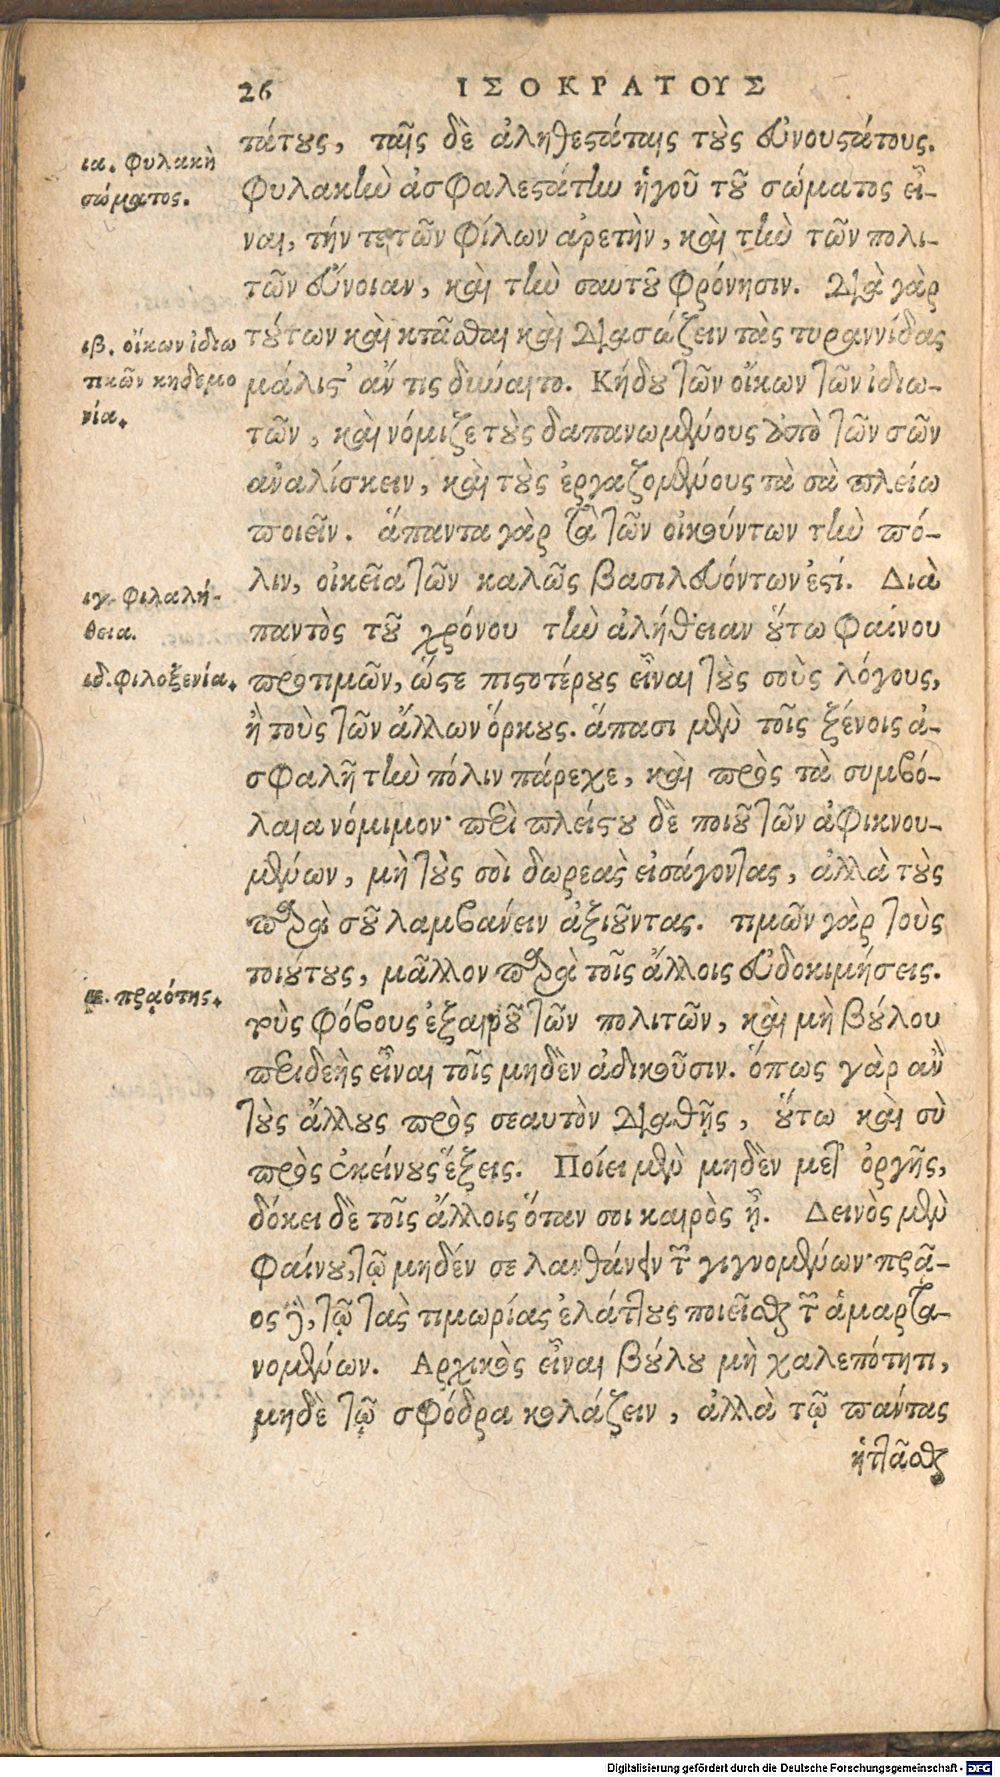 26 ΙΣΟΚΡΑΤΟΥΣ
τάτους, ταῖς δὲ ἀληθεστάταις τοὺς εὐνουστάτους.
ια. Φυλακὴ
σώματος.
Φυλακὴν ἀσφαλεστάτην ἡγοῦ τοῦ σώματος εἶ-
ναι, τήν τε τῶν φίλων ἀρετὴν, καὶ τὴν τῶν πολι-
τῶν εὔνοιαν, καὶ τὴν σαυτοῦ φρόνησιν. Διὰ γὰρ
ιβ. οἴκων ἰδιω
τικῶν κηδεμο
νία.
τούτων καὶ κτᾶσθαι καὶ διασώζειν τὰς τυραννίδας
μάλιστ' ἄν τις δύναιτο. Κήδου τῶν οἴκων τῶν ἰδιω-
τῶν, καὶ νόμιζε τοὺς δαπανωμένους ἀπὸ τῶν σῶν
ἀναλίσκειν, καὶ τοὺς ἐργαζομένους τὰ σὰ πλείω
ποιεῖν. ἅπαντα γὰρ τὰ τῶν οἰκούντων τὴν πό-
λιν, οἰκεῖα τῶν καλῶς βασιλευόντων ἐστί. Διὰ
ιγ. Φιλαλή-
θεια.
παντὸς τοῦ χρόνου τὴν ἀλήθειαν οὕτω φαίνου
ιδ. φιλοξενία.
προτιμῶν, ὥστε πιστοτέρους εἶναι τοὺς σοὺς λόγους,
ἢ τοὺς τῶν ἄλλων ὅρκους. ἅπασι μὲν τοῖς ξένοις ἀ-
σφαλῆ τὴν πόλιν πάρεχε, καὶ πρὸς τὰ συμβό-
λαια νόμιμον· περὶ πλείστου δὲ ποιοῦ τῶν ἀφικνου-
μένων, μὴ τοὺς σοὶ δωρεὰς εἰσάγοντας, ἀλλὰ τοὺς
παρὰ σοῦ λαμβάνειν ἀξιοῦντας. τιμῶν γὰρ τοὺς
τοιούτους, μᾶλλον παρὰ τοῖς ἄλλοις εὐδοκιμήσεις.
ιε. πραότης.
τοὺς φόβους ἐξαιροῦ τῶν πολιτῶν, καὶ μὴ βούλου
περιδεὴς εἶναι τοῖς μηδὲν ἀδικοῦσιν. ὅπως γὰρ ἂν
τοὺς ἄλλους πρὸς σεαυτὸν διαθῇς, οὕτω καὶ σὺ
πρὸς ἐκείνους ἕξεις. Ποίει μὲν μηδὲν μετ' ὀργῆς,
δόκει δὲ τοῖς ἄλλοις ὅταν σοι καιρὸς ᾖ. Δεινὸς μὲν
φαίνου, τῷ μηδέν σε λανθάνειν τῶν γιγνομένων· πρᾶ-
ος δὲ, τῷ τὰς τιμωρίας ἐλάττους ποιεῖσθαι τῶν ἁμαρτα-
νομένων. Αρχικὸς εἶναι βούλου μὴ χαλεπότητι,
μηδὲ τῷ σφόδρα κολάζειν, ἀλλὰ τῷ πάντας
ἡττᾶσθαι
Digitalisierung gefördert durch die Deutsche Forschungsgemeinschaft - DFG